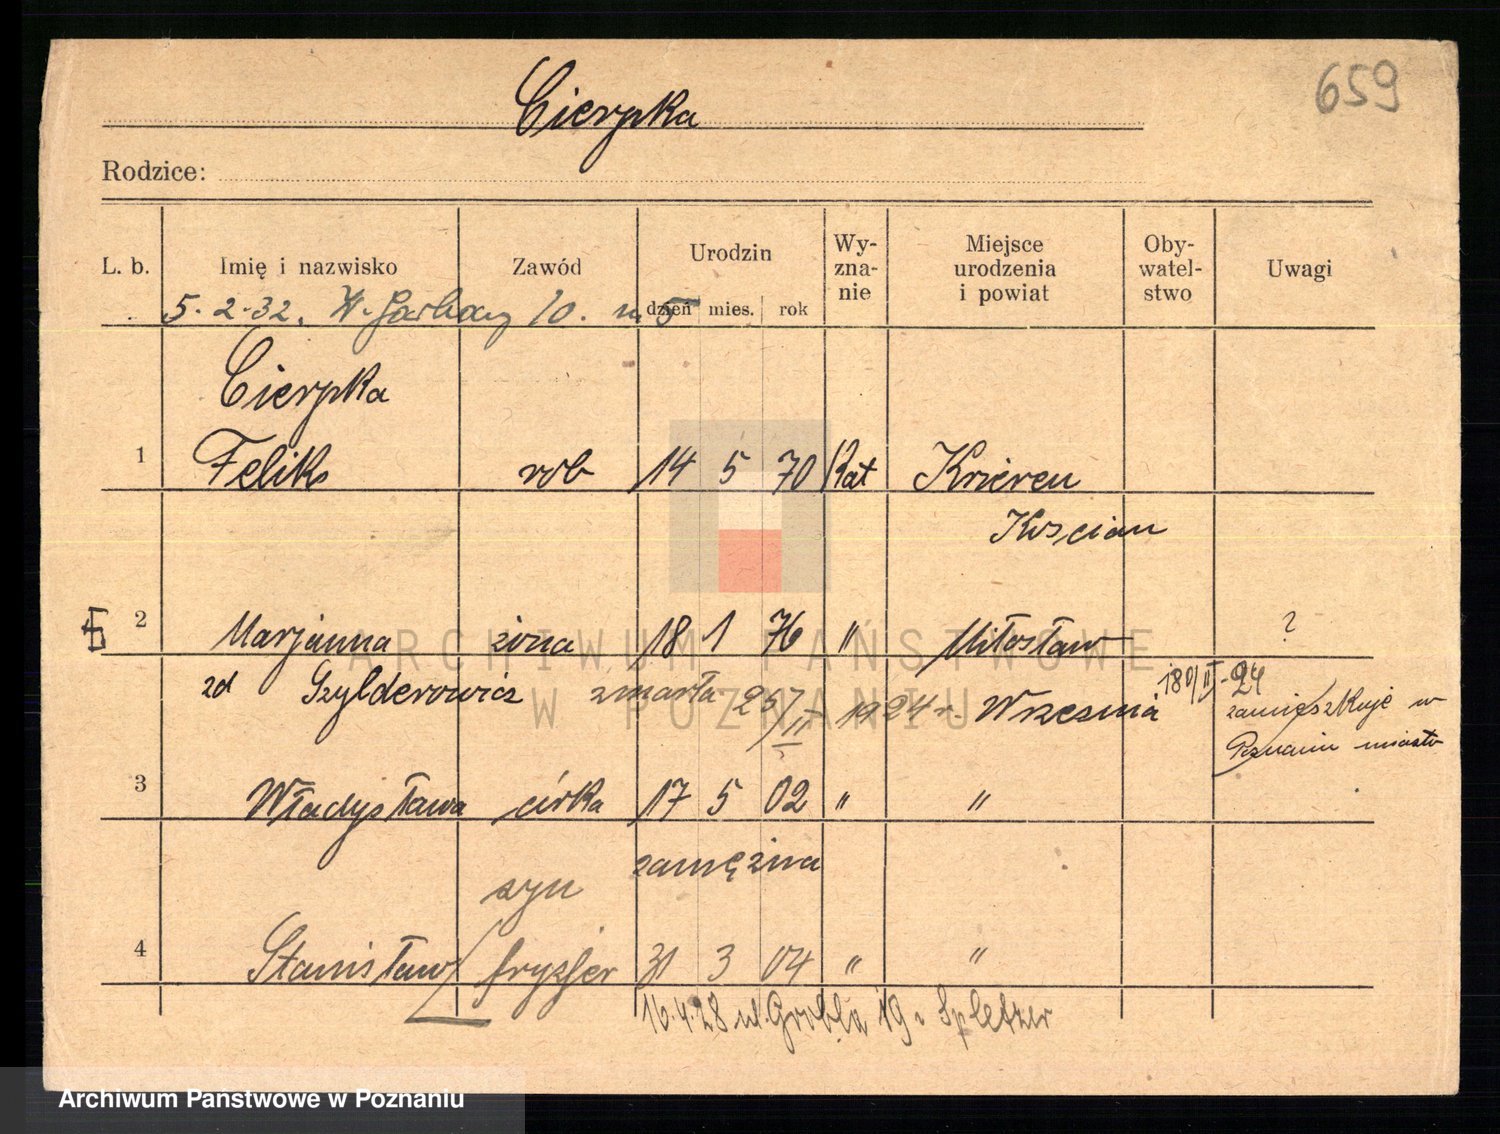 659
Cierpka
Rodzice:
L. b. Imię i nazwisko Zawód Urodzin dzień mies. rok Wy-zna-nie Miejsce urodzenia i powiat Oby-watel-stwo Uwagi
5. 2. 32. W. Garbary 10. m 5
Cierpka
1 Feliks rob 14 5 70 Kat Krieren
Kościan
2 Marjanna żona 18 1 76 " Miłosław ?
zd Szylderowicz zmarła 25/II 1924 r. Września 180/II-24
zamieszkuje w
Poznaniu miasto
3 Władysława córka 17 5 02 " "
zamężna
syn
4 Stanisław fryzjer 31 3 04 " "
16.4.28 ul. Grobla 19 Spletzer
ARCHIWUM PAŃSTWOWE
W POZNANIU
Archiwum Państwowe w Poznaniu